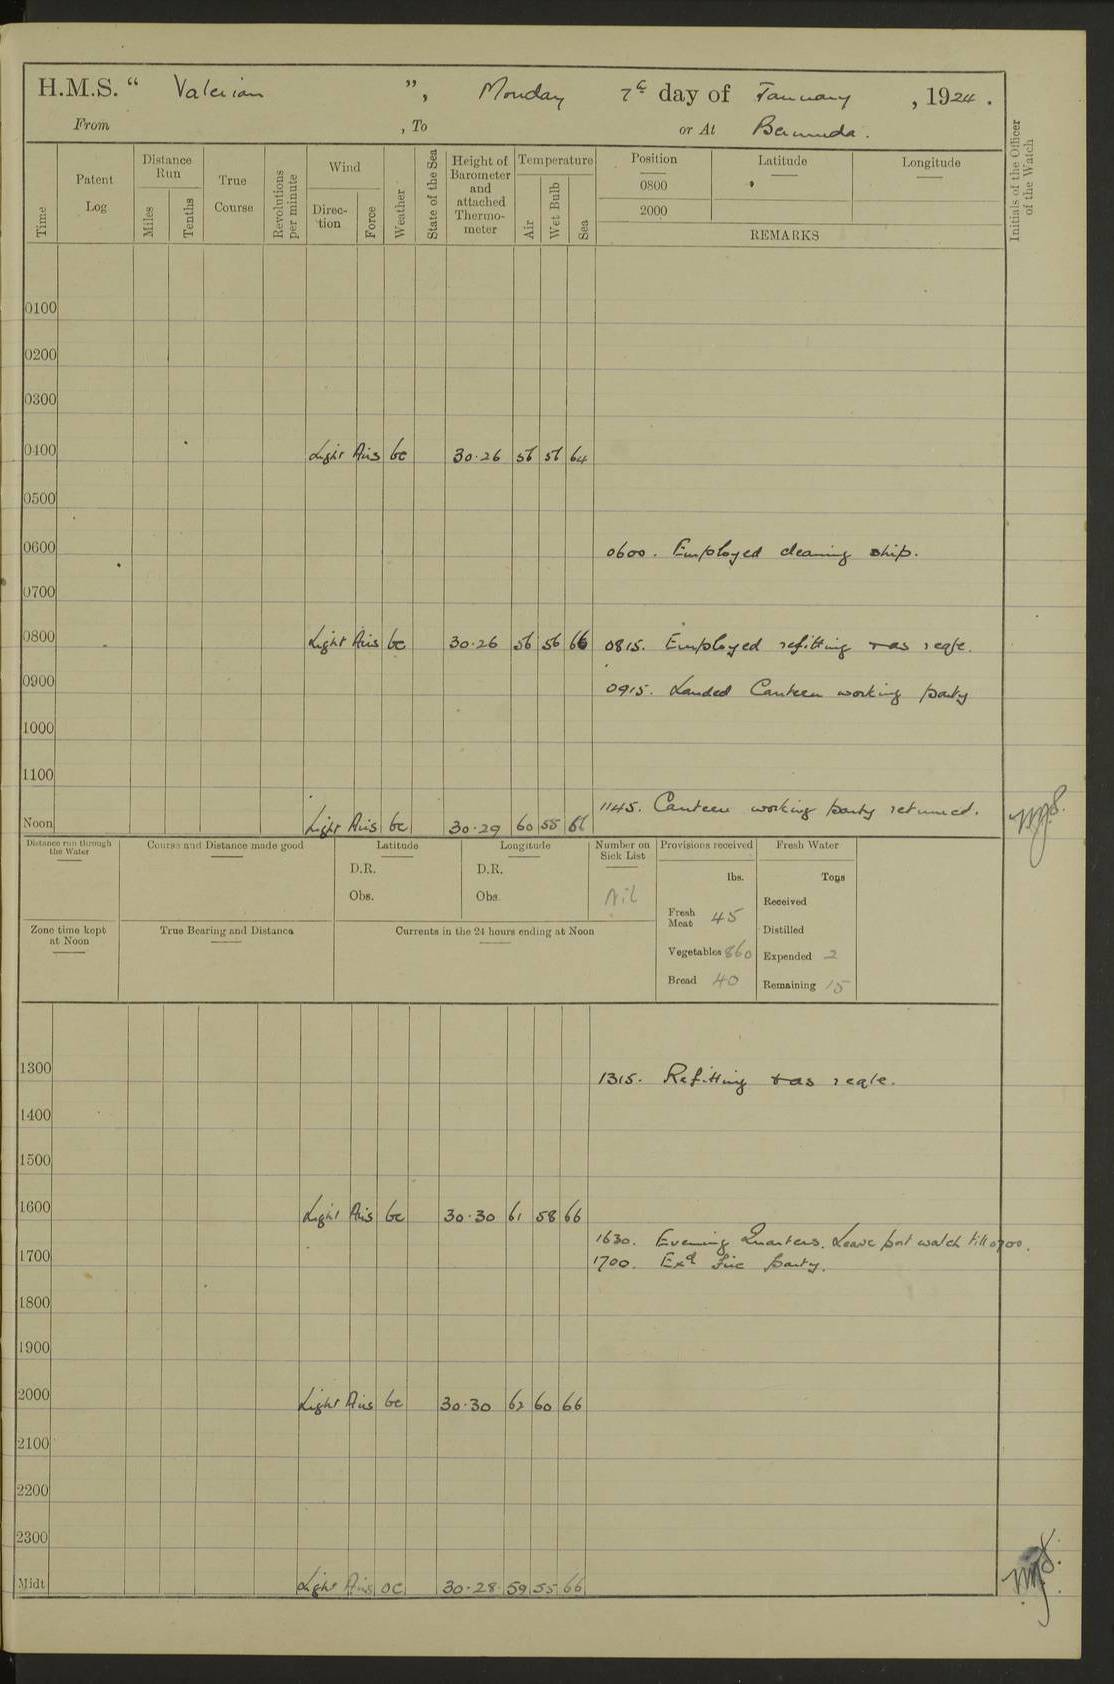 H.M.S. “ Valerian ”, Monday 7th day of January, 1924.
From , To or At Bermuda.
Time
Patent Log
Distance Run
Miles
Tenths
True Course
Revolutions per minute
Wind
Direc-tion
Force
Weather
State of the Sea
Height of Barometer and attached Thermo-meter
Temperature
Air
Wet Bulb
Sea
Position
Latitude
Longitude
0800
2000
REMARKS
Initials of the Officer of the Watch
0100
0200
0300
0400 Light Airs bc 30.26 56 56 64
0500
0600 0600. Employed cleaning ship.
0700
0800 Light Airs bc 30.26 56 56 66 0815. Employed refitting
0900 0915. Landed Canteen working party
1000
1100
1145. Canteen working party returned.
Noon Light Airs bc 30.29 60 58 66
Distance run through the Water
Course and Distance made good
Latitude
D.R.
Obs.
Longitude
D.R.
Obs.
Number on Sick List
Nil
Provisions received
lbs.
Fresh Meat 45
Vegetables 860
Bread 40
Fresh Water
Tons
Received
Distilled
Expended 2
Remaining 15
Zone time kept at Noon
True Bearing and Distance
Currents in the 24 hours ending at Noon
1300 1315. Refitting
1400
1500
1600 Light Airs bc 30.30 61 58 66
1630. Evening Quarters. Leave port watch till 0700.
1700 1700. Exd Fire Party.
1800
1900
2000 Light Airs bc 30.30 62 60 66
2100
2200
2300
Midt Light Airs oc 30.28 59 55 66